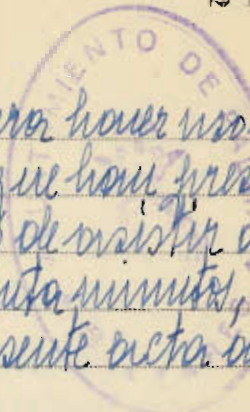 MIENTO DE
ra hacer uso
que han pres
de asistir a
nta minutos,
sente acta a